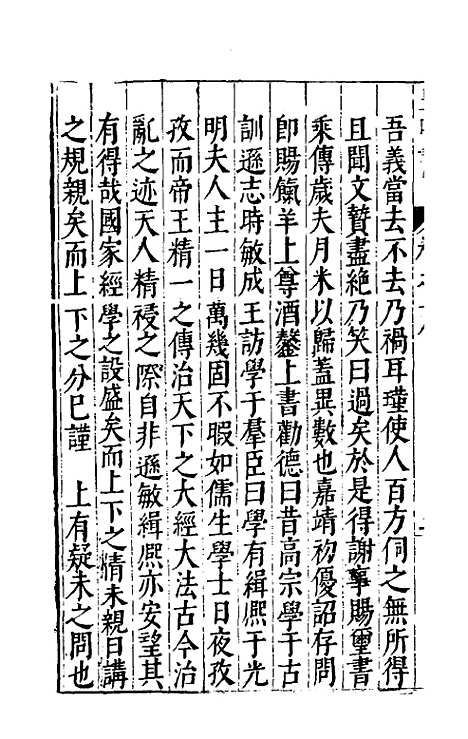 吾義當去不去乃禍耳瑾使人百方伺之無所得
且聞文贄盡絶乃笑曰過矣於是得謝事賜璽書
乘傳歲夫月米以歸蓋異數也嘉靖初優詔存問
即賜餼羊上尊酒鏊上書勸德曰昔高宗學于古
訓遜志時敏成王訪學于羣臣曰學有緝熈于光
明夫人主一日萬幾固不暇如儒生學士日夜孜
孜而帝王精一之傳治天下之大經大法古今治
亂之迹天人精祲之際自非遜敏緝熈亦安望其
有得哉國家經學之設盛矣而上下之情未親日講
之規親矣而上下之分巳謹　上有疑未之問也